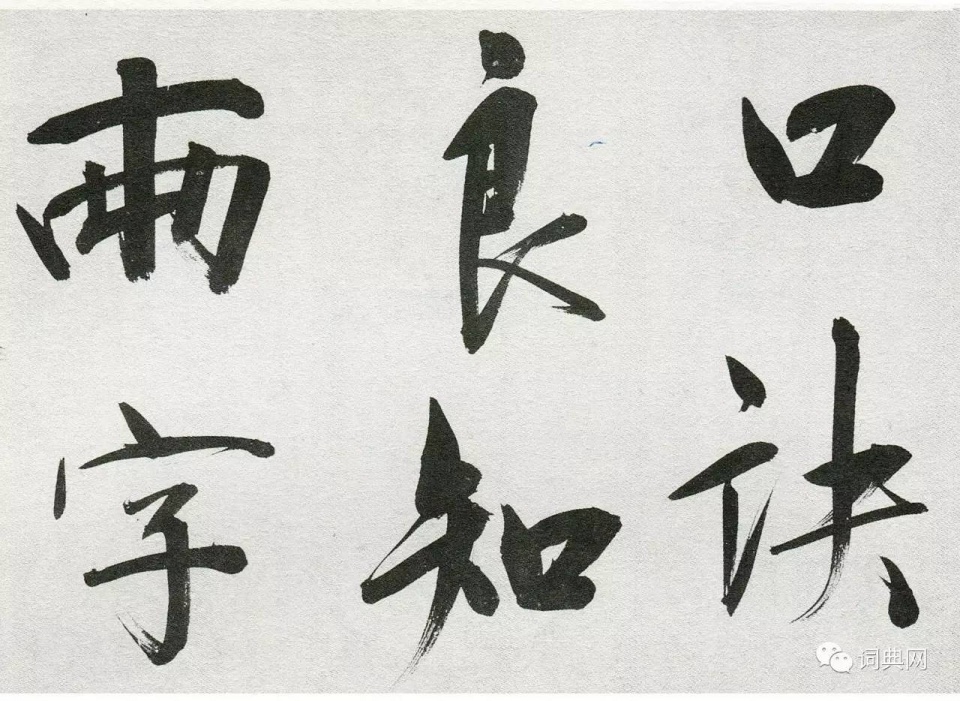 口訣
良知
兩字
词典网